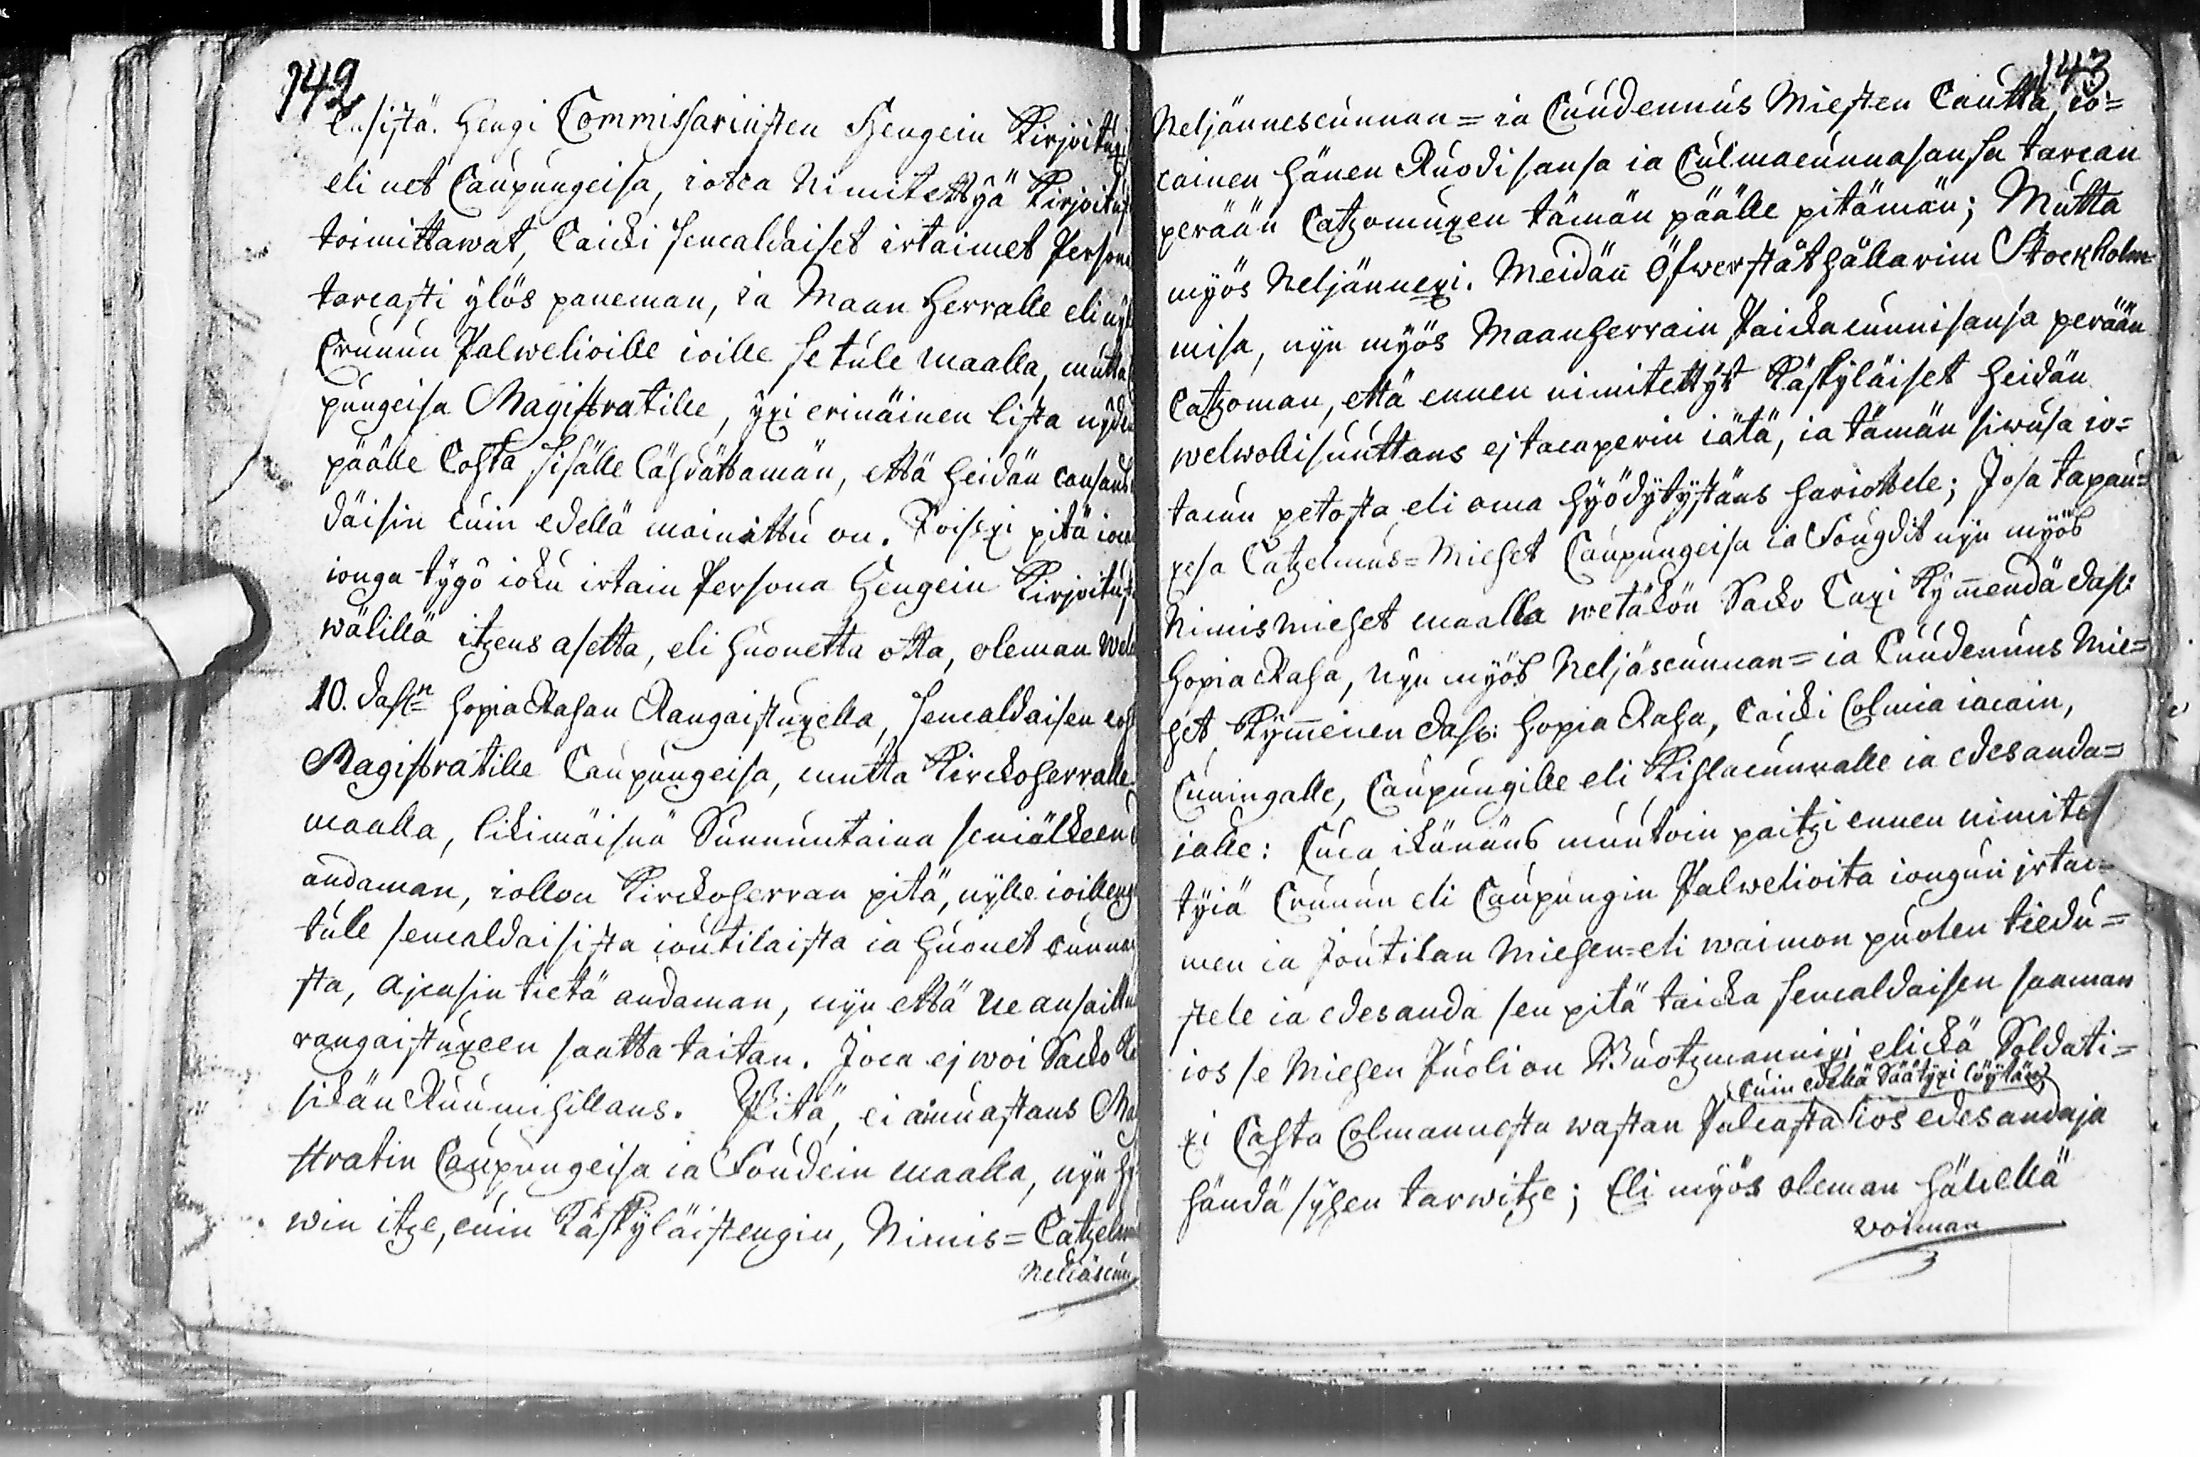 142
ensistä. Hengi Commissariusten Hengein Kirjoituxi
eli net Caupungeisa, iotca Nimitettyä Kirjoitust
toimittawat, Caicki sencaldaiset irtaimet Person
tarcasti ylös paneman, ia Maan Herralle eli nyl
Crunun Palwelioille ioille se tule maalla, mutta
pungeisa Magistratille, yxi erinäinen lista nyden
päälle Cohta sisälle lähdättämän, että heidän cansans
däisin cuin edellä mainittu on. Toisexi pitä iocu
ionga tygö iocu irtain Persona Hengein Kirjoitust
wälillä itzens asetta, eli huonetta otta, oleman wel
10. dahl:n hopia Rahan Rangaistuxella, sencaldaisen coh
Magistratille Caupungeisa, mutta Kirckoherralle
maalla, likimäisnä Sununtaina senjälkeen
andaman, iollon Kirckoherran pitä, nylle ioilleng
tule sencaldaisista ioutilaista ia huonet cunnas
sta, ajcasin tietä andaman, nyn että ne ansaittu
rangaistuxeen saatta taitan. Joca ej woi Sacko
sikän Ruumihillans. Pitä, ei ainuastans Ma
stratin Caupungeisa ia Foudein maalla, nyn hy
win itze, cuin Käskyläistengin, Nimis= Catzelm
Neliäscun
143
Neljännescunnan= ia Cuudennus Miesten Cautta, io=
cainen hänen Ruodisansa ia Culmacunnasansa tarcan
perään Catzomuxen tämän päälle pitämän; Mutta
myös Neljännexi. Meidän Öfwerstäthållarim Stockholm=
misa, nyn myös Maanherrain Paickacunnisansa perään
Catzoman, että ennen nimitettyt Käskyläiset heidän
welwollisuuttans ej tacaperin iätä, ia tämän siwusa io=
tacun petosta eli oma hyödytystäns hariottele; Josa tapau=
xesa Catzelmus=Miehet Caupungeisa ia Fougdit nyn myös
Nimismiehet maalla wetäkön Sacko Caxi Kymmendä dahl:
hopia Raha, nyn myös Neljäscunnan= ia Cuudennus Mie=
het Kymmenen dahl: hopia Raha, Caicki Colmia iacain,
Cuningalle, Caupungille eli Kihlacunnalle ia edesanda=
jalle: Cuca ikänäns muutoin paitzi ennen nimitet
tyiä Crunun eli Caupungin Palwelioita iongun irtai=
men ia Joutilan Miehen=eli waimon puolen tiedu=
stele ia edesanda sen pitä taicka sencaldaisen saaman
ios se Miehen Puoli on Buotzmannixi elickä Soldati=
cuin edellä Säätyxi löytän
xi Cahta Colmannesta wastan Palcasta ios edesandaja
händä syhen tarwitze; Eli myös oleman hänellä
woiman